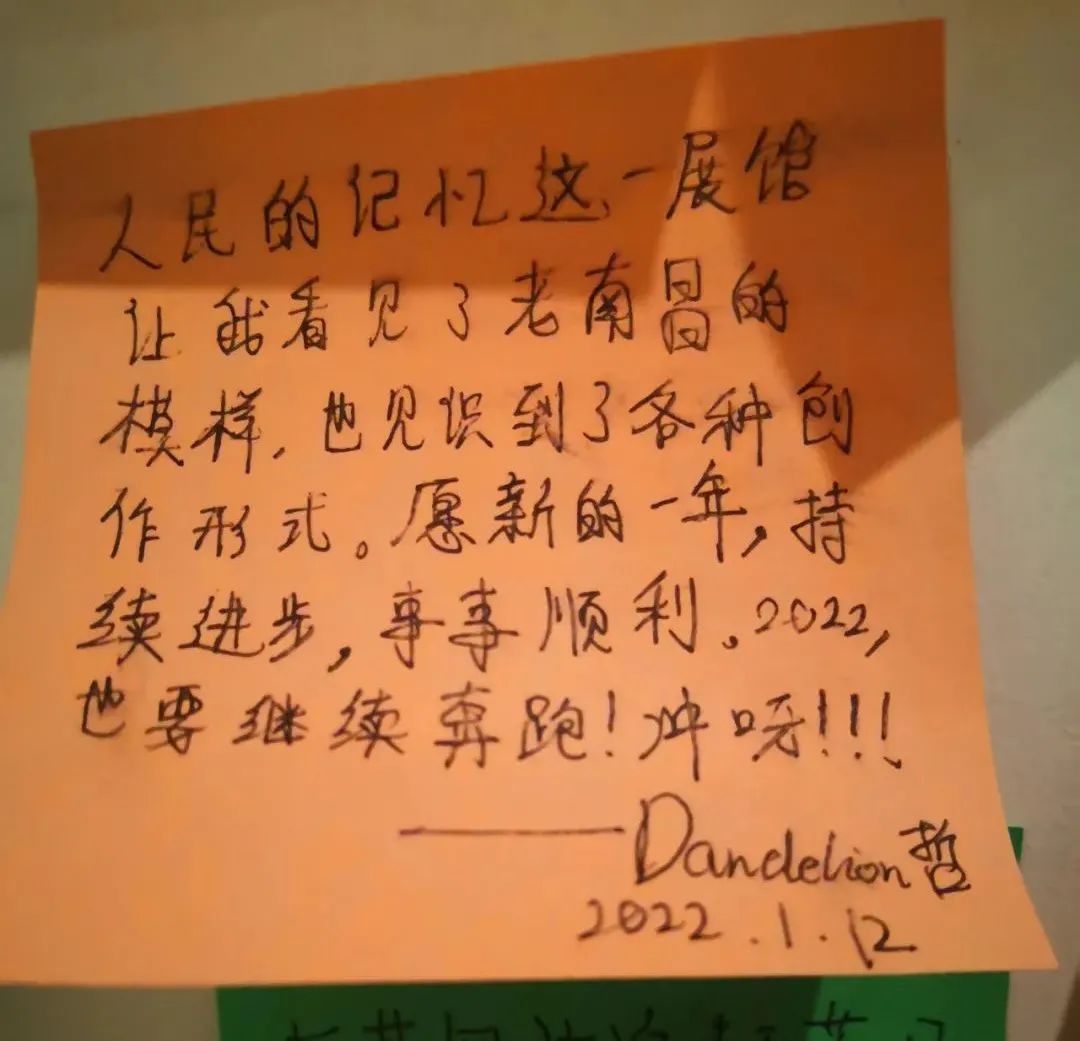 人民的记忆这一展馆
让我看见了老南昌的
模样，也见识到了各种创
作形式。愿新的一年，持
续进步，事事顺利。2022，
也要继续奔跑！冲呀！！！
——Dandelion哲
2022.1.12